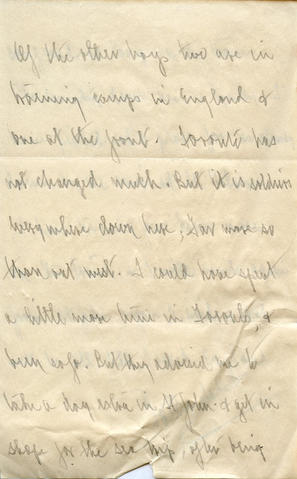 Of the other boys two are in
training camps in England &
one at the front. Toronto has
not changed much. But it is soldiers
everywhere down here; Far more so
than out west. I could have spent
a little more time in Toronto, &
been safe. But they advised me to
take a day extra in St John & get in
shape for the sea trip, after being